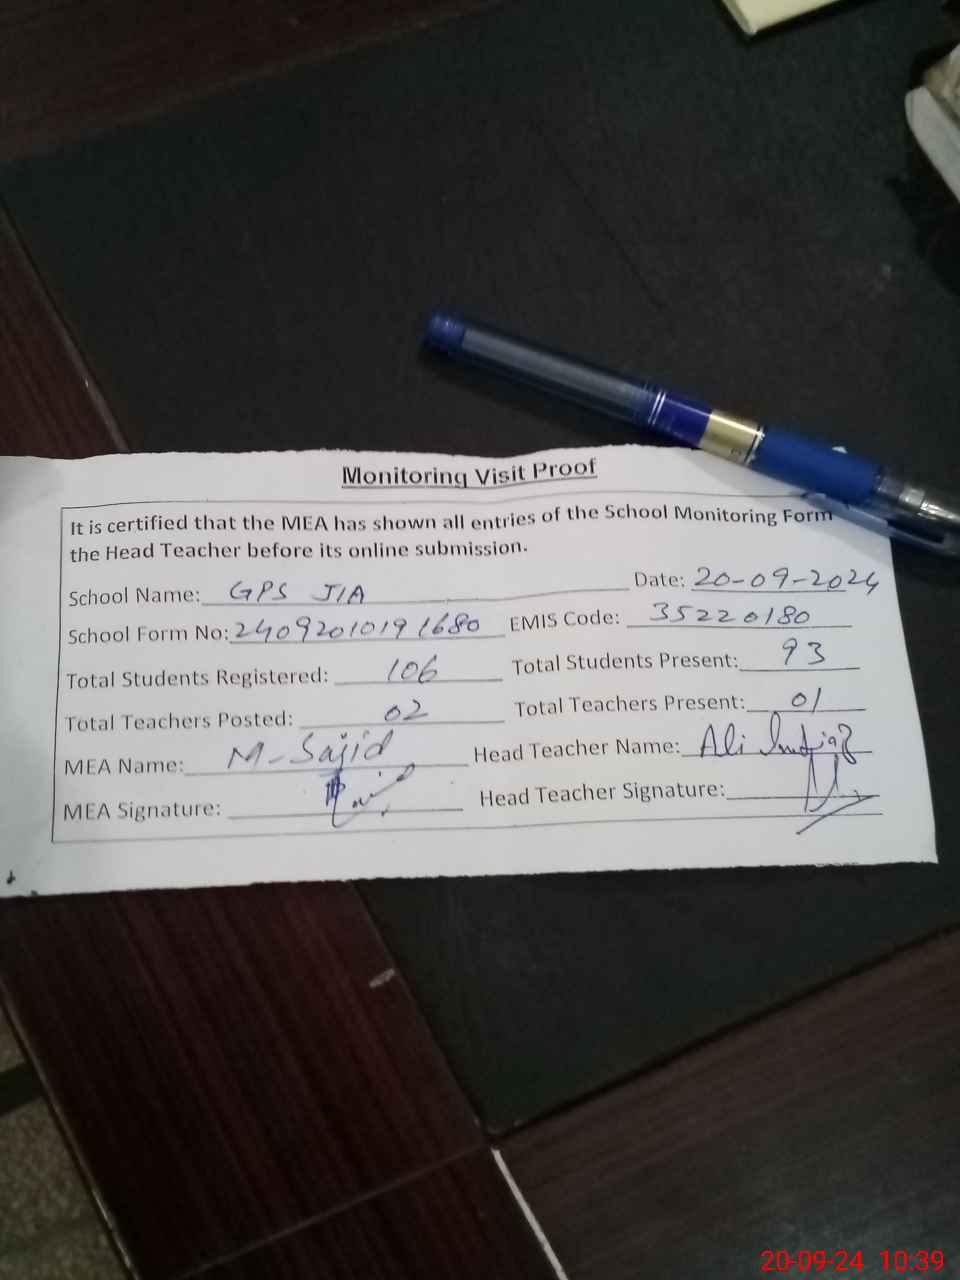 Monitoring Visit Proof
It is certified that the MEA has shown all entries of the School Monitoring Form
the Head Teacher before its online submission.
School Name: GPS JIA Date: 20-09-2024
School Form No: 24092010191680 EMIS Code: 35220180
Total Students Registered: 106 Total Students Present: 93
Total Teachers Posted: 02 Total Teachers Present: 01
MEA Name: M-Sajid Head Teacher Name: Ali
MEA Signature: Head Teacher Signature:
20-09-24 10:39